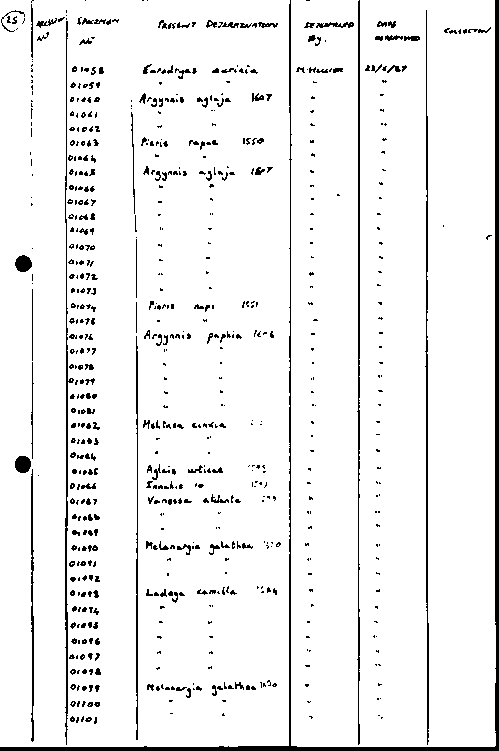 25
SPECIMEN Nº PRESENT DETERMINATION DETERMINED By. DATE DETERMINED COLLECTION
01058 Eurodryas aurinia M. Hillier 23/6/87
01059 " " " "
01060 Argynnis aglaja 1607 " "
01061 " " " "
01062 " " " "
01063 Pieris rapae 1550 " "
01064 " " " "
01065 Argynnis aglaja 1607 " "
01066 " " " "
01067 " " " "
01068 " " " "
01069 " " " "
01070 " " " "
01071 " " " "
01072 " " " "
01073 " " " "
01074 Pieris napi 1551 " "
01075 " " " "
01076 Argynnis paphia 1606 " "
01077 " " " "
01078 " " " "
01079 " " " "
01080 " " " "
01081 " " " "
01082 Melitaea cinxia " "
01083 " " " "
01084 " " " "
01085 Aglais urticae " "
01086 Innachis io " "
01087 Vanessa atalanta " "
01088 " " " "
01089 " " " "
01090 Melanargia galathea " "
01091 " " " "
01092 " " " "
01093 Ladoga camilla " "
01094 " " " "
01095 " " " "
01096 " " " "
01097 " " " "
01098 " " " "
01099 Melanargia galathea 1620 " "
01100 " " " "
01101 " " " "